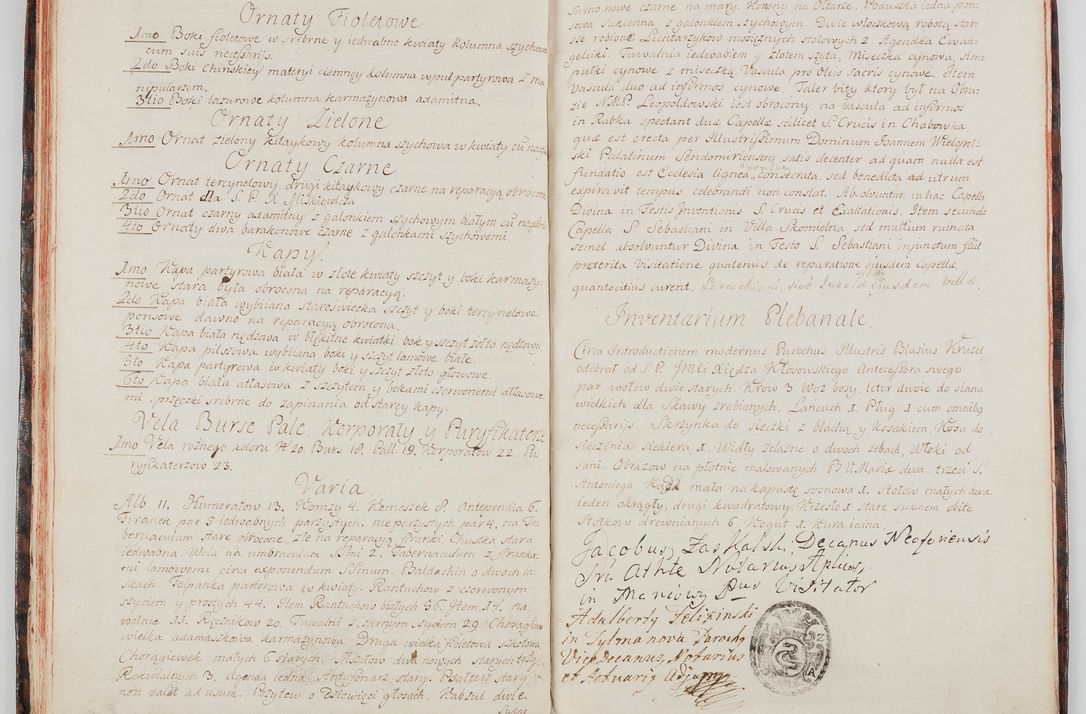 Ornaty Fioletowe
1mo Boki fioletowe w srebrne y jedwabne kwiaty kolumna szychowa
cum suis necessariis.
2do Boki Chinskiey materyi ciemney kolumna w puł partyrowa z ma
nipularzem.
3tio Boki lazurowe kolumna karmazynowa adamitna.
Ornaty Zielone
1mo Ornat zielony kitaykowy kolumna szychowa w kwiaty cū
Ornaty Czarne
1mo Ornat tercynelowy, drugi kitaykowy czarne na reparacyą obrocone
2do Ornat dla S. P. X Miskiewicza
3tio Ornat czarny adamitny z galonkiem szychowym białym cū
4to Ornaty dwa barakonowe czarne z galonkami szychowemi.
Kapy.
1mo Kapa partyrowa biała w złote kwiaty szczyt y boki karmazy-
nowe stara była obrocona na reparacyą.
2do Kapa biała wybiiana staroswiecka szczyt y boki tercynelowe
ponsowe dawno na reparacyą obrocona.
3tio Kapa biała nędzowa w błękitne kwiatki bok y szczyt żołto nędzowy.
4to Kapa pilszowa wybiiana boki y szczyt lamowe białe.
5to Kapa partyrowa w kwiaty boki y szczyt złoto głowowe.
6to Kapa biała atlasowa z szczytem y bokami czerwonemi atłasowe
mi przęczki srebrne do zapinania od starey kapy.
Vela Burse Pale, Korporały y Puryfikaterze
1mo Vela rożnego koloru N 20. Burs 18. Pall 19. Korporałow 22. Pu
ryfikaterzow 23.
Varia
Alb 11. Humerałow 13. Komzy 4. Komeszek 8. Antependia 6.
Firanek par 5 jedwabnych parzystych, nie parzystych par 4, na Ta
bernaculum stare obrocone, złe na reparacyą firanki, Chustka stara
jedwabna. Wela na umbraculum Ssmi 2. Tabernaculum z firanka
mi lamowemi circa exponendum Ssmum. Baldachin o dwoch la
skach. Tupanka parterowa w kwiaty. Rantuchow z czerwonym
szyciem y prostych 44. Item Rantuchow białych 56. Item 14. na
wołnie 11. Ręcznikow 20. Tuwalni z czarnym szyciem 29. Chorągiew
wielka adamaszkowa karmazynowa. Druga wielka fioletowa szkotowa
Chorągiewek małych 6 starych. Mszałow dwa nowych starych trzy
Rekwialnych 3. Agenda iedna, Antyfonarz stary. Psałterz stary
non valet ad usum. Pozytew o dziewięci głosach. Kapsuł dwie
Sukno
Sukno nowe czarne na mary. Kowny na Ołtarze, Poduszka iedna pon-
sowa sukienna z galonkiem szychowym. Dwie włoczkową robotą sta-
re robione. Lichtarzykow mosiężnych stołowych 2. Agendka Ewan-
geliki. Tuwalnia jedwabiem y złotem szyta, Miseczka cynowa, Am-
pułki cynowe z miseczką. Vascula pro Oleis Sacris cynowe. Item
Vascula duo ad infirmos cynowe. Taler bity ktory był na Obra
zie N.M.P. Leopoldowski iest obrocony na vascula ad infirmos
in Rabka spectant duæ Capellæ scilicet S. Crucis in Chabowka,
quæ est erecta per Illustrissimum Dominum Joannem Wielopol-
ski Palatinum Sendomiriensem satis decenter ad quam nulla est
fundatio est Ecclesia lignea consecrata, sed benedicta ad utrum
expiravit tempus celebrandi non constat. Absolvuntur in hac Capella
Divina in Festis Inventionis S. Crucis et Exaltationis. Item secunda
Capella S Sebastiani in Villa Skomielna sed multum ruinata
semel absolvuntur Divina in Festo S. Sebastiani injunctum fuit
preterita Visitatione quatenus, de reparatione ejusdem Capellæ,
quantocitius curent, Parochiani sive Incolæ ejusdem Villæ.
Inventarium Plebanale
Circa Introductionem modernus Parochus Illustris Blasius Kruzel
odebrał od S.P. JMći Xiędza Kłosowskiego Antecessora swego
par wołow dwie starych. Krow 3. Woz bosy, leter dwoie do siana
wielkich dla Skawy zrobionych. Łancuch 1. Pług 1 cum omnibus
necessariis. Skrzynka do sieczki z blachą y kosakiem, Kosa do
sieczenia siekiera 1. Widły żelazne o dwoch zebach, Włoki od
sani. Obrazow na płotnie malowanych B.V. Mariæ dwa, trzeci S.
Antoniego. Kadz mała na kapustę sosnowa 1. Stołow małych dwa
ieden okrągły, drugi kwadratowy. Krzesło 1 stare suknem obite
Stołkow drewnianych 6. Kogut 1. Kura iedna.
Jacobus Zaskalski, Decanus Neoforiensis
Notarius Aplicus,
Visitator
Adalberty Felixinski
in Tylmanova Paroch
Vice Decanus, Notarius
et Actuariy Adjunn